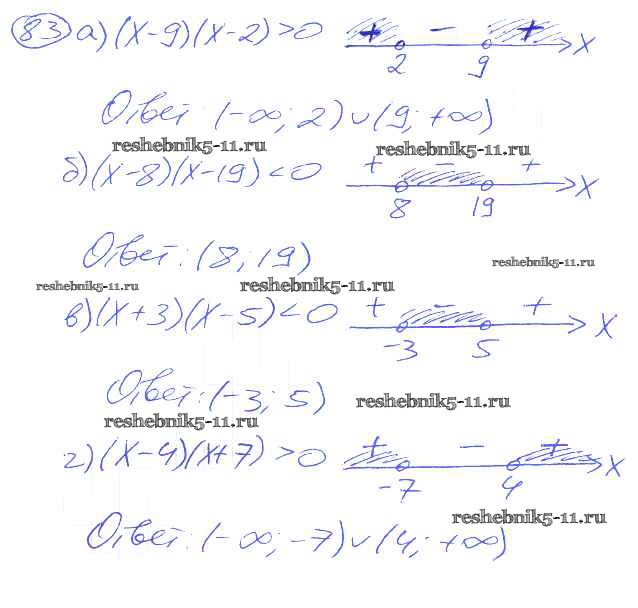 83 а) (x-9)(x-2)>0 + - + x
2 9
Ответ: (-∞; 2)∪(9; +∞)
reshebnik5-11.ru reshebnik5-11.ru
б) (x-8)(x-19)<0 + - + x
8 19
Ответ: (8; 19)
reshebnik5-11.ru
reshebnik5-11.ru reshebnik5-11.ru
в) (x+3)(x-5)<0 + - + x
-3 5
Ответ: (-3; 5)
reshebnik5-11.ru
reshebnik5-11.ru
г) (x-4)(x+7)>0 + - + x
-7 4
reshebnik5-11.ru
Ответ: (-∞; -7)∪(4; +∞)